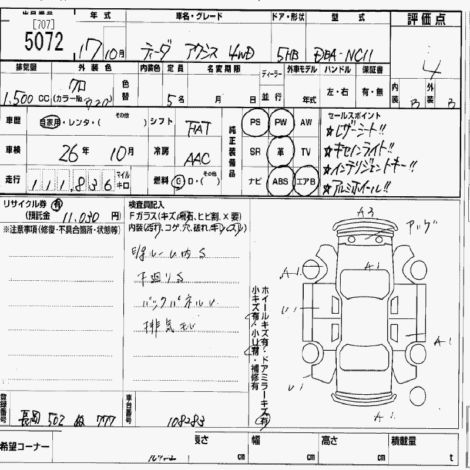 出品番号 年式 車名・グレード ドア・形状 型式 評価点
[707]
5072 17年 10月 ティーダ アクシス 4WD 5HB DBA-NC11 4
排気量 外装色 内装色 定員 名変期限 ディーラー 外車モデル ハンドル 保証書 内装 B 外装 B
1,500 CC クロ (カラーNo. 色替 5名 月 日 並行 年式 左・右 有・無
車歴 自家用・レンタ・(その他) シフト FAT 純正装備品 PS PW AW セールスポイント
☆レザーシート!!
車検 26年 10月 冷房 AAC SR 革 TV ☆キセノンライト!
☆インテリジェントキー!!
走行 111,836 マイル キロ 燃料 G D・(その他) ナビ ABS エアB ☆アルミホイール!!
リサイクル券 有
(預託金) 11,030円
検査員記入
Fガラス(キズ・飛石、ヒビ割、X要)
内装(汚れ、コゲ、穴、破れ、キレ、スレ)
※注意事項(修復・不具合箇所・欠品状態等)
下廻りS
バックパネルU
小キズ有・小U有・補修有
ホイールキズ有・ドアミラーキズ(有)
A3
A1
A1
A1
U1
A1
U1
登録番号 長岡 502 ぬ 777 車台番号 108283
希望コーナー 長さ cm 幅 cm 高さ cm 積載量 t